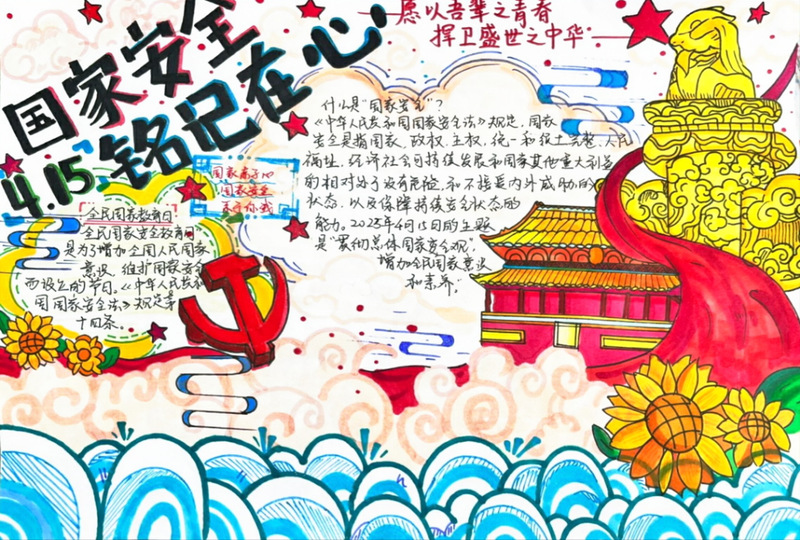 国家安全
铭记在心
4.15
愿以吾辈之青春
捍卫盛世之中华
什么是"国家安全"?
《中华人民共和国国家安全法》规定,国家
安全是指国家,政权,主权,统一和领土完整、人民
福祉,经济社会可持续发展和国家其他重大利益
的相对处于没有危险,和不接受内外威胁的
状态,以及保障持续安全状态的
能力。2025年4月15日的主题
是"贯彻总体国家安全观",
增加全民国家意识
和素养。
国家
国家安全
全民国家教育日
全民国家安全教育日
是为了增加全国人民国家
意识,维护国家安全
而设立的节日。《中华人民共和
国国家安全法》规定第
十四条。